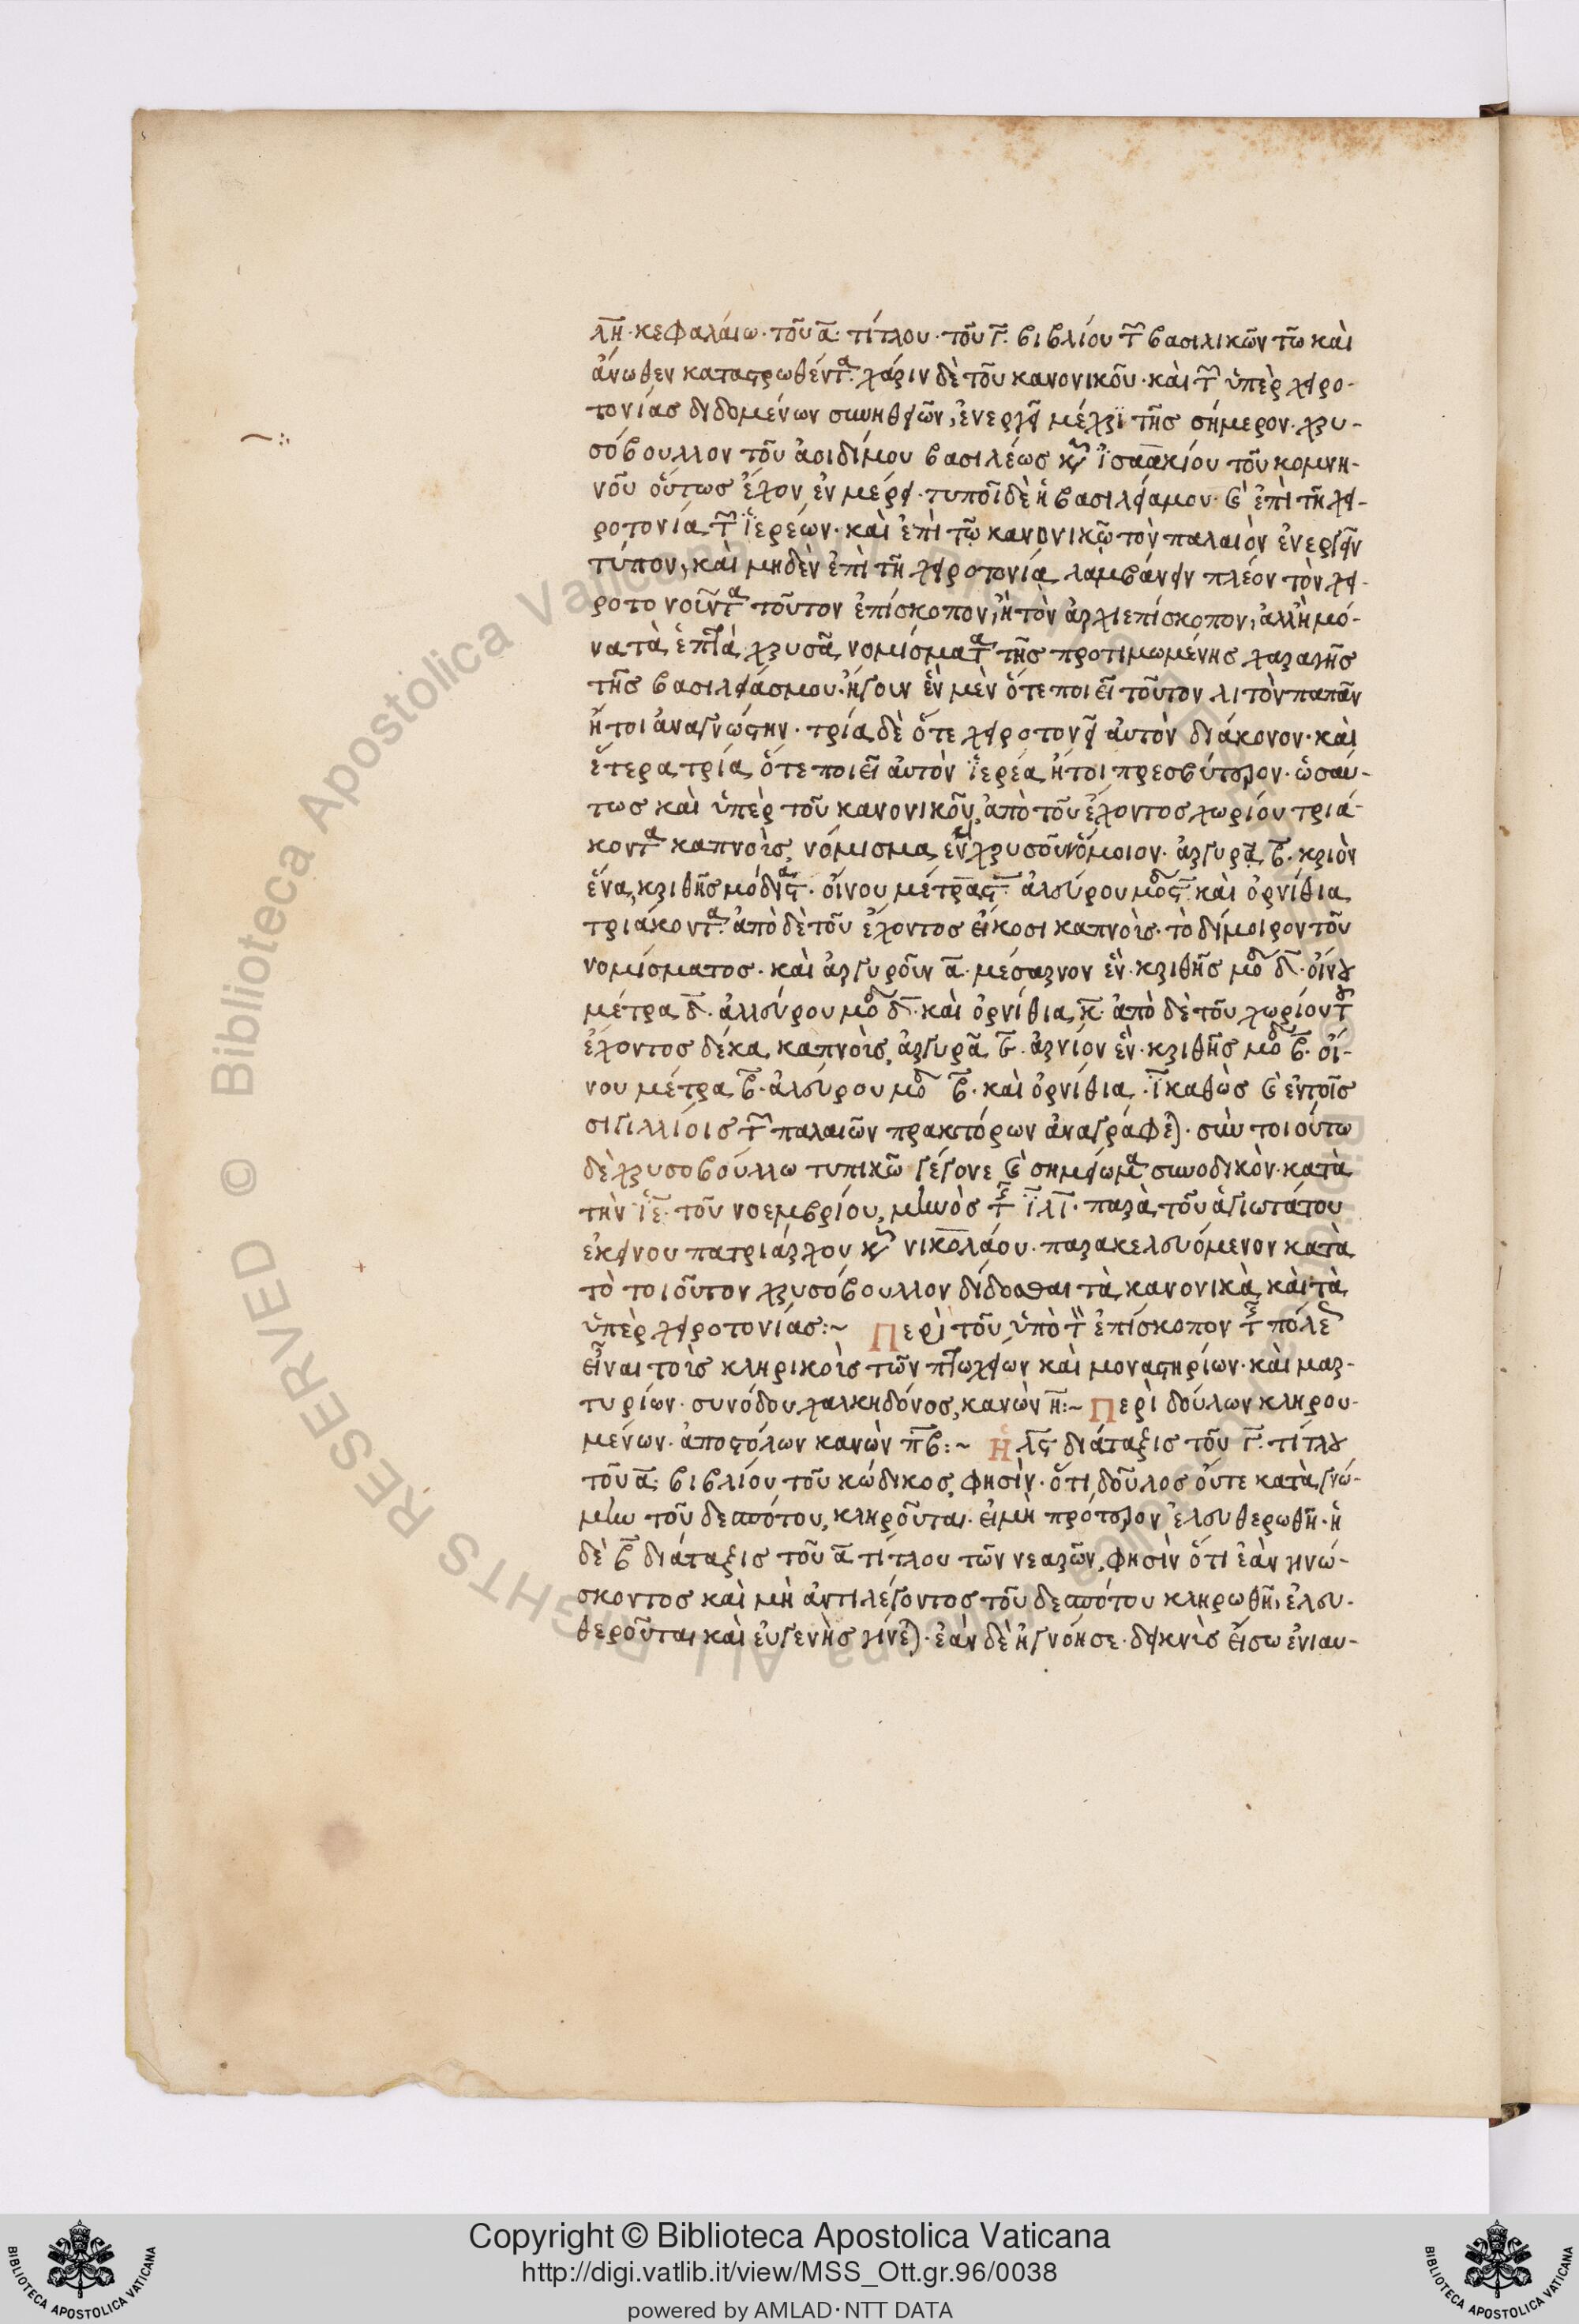 λη· κεφαλάιω· τοῦ α· τίτλου· τοῦ γ· βιβλίου τῶν βασιλικῶν τῶ καὶ
ἄνωθεν καταστρωθέντα· χάριν δὲ τοῦ κανονικοῦ· καὶ τῶν ὑπὲρ χειρο-
τονίας διδομένων συνηθειῶν, ἐνεργεῖ μέχρϊ τῆς σήμερον· χρυ-
σόβουλλον τοῦ ἀοιδίμου βασιλέως κυροῦ ἰσαακίου τοῦ κομνη-
νοῦ οὕτως ἔχον ἐν μέρει· τυποῖ δὲ ἡ βασιλεία μου· καὶ ἐπὶ τῆ χει-
ροτονία τῶν ἱερέων· καὶ ἐπὶ τῶ κανονικῶ τὸν παλαιὸν ἐνεργεῖν
τύπον, καὶ μηδὲν ἐπὶ τῆ χειροτονία λαμβάνειν πλέον τὸν χει-
ροτονοῦντα τοῦτον ἐπίσκοπον, ἢ τὸν ἀρχιεπίσκοπον, ἀλλ' ἢ μό-
να τὰ ἑπτὰ χρυσᾶ νομίσματα τῆς προτιμωμένης χαραγῆς
τῆς βασιλείας μου· ἤγουν ἓν μὲν ὅτε ποιεῖ τοῦτον λιτὸν παπᾶν
ἤτοι ἀναγνώστην· τρία δὲ ὅτε χειροτονεῖ αὐτὸν διάκονον· καὶ
ἕτερα τρία ὅτε ποιεῖ αὐτὸν ἱερέα ἤτοι πρεσβύτερον· ὡσαύ-
τως καὶ ὑπὲρ τοῦ κανονικοῦ, ἀπὸ τοῦ ἔχοντος χωρίου τριά-
κοντα καπνοὺς, νόμισμα ἓν χρυσοῦν ὅμοιον· ἀργυρᾶ β· κριὸν
ἕνα, κριθῆς μόδια ς· οἴνου μέτρα ς· ἀλεύρου μοδ ς· καὶ ὀρνίθια
τριάκοντα· ἀπὸ δὲ τοῦ ἔχοντος εἴκοσι καπνοὺς· τὸ δίμοιρον τοῦ
νομίσματος· καὶ ἀργυροῦν α· μέσαρνον ἓν· κριθῆς μοδ δ· οἴνου
μέτρα δ· ἀλεύρου μοδ δ· καὶ ὀρνίθια κ· ἀπὸ δὲ τοῦ χωρίου τοῦ
ἔχοντος δέκα καπνοὺς, ἀργυρᾶ γ· ἀρνίον ἓν· κριθῆς μοδ β· οἴ-
νου μέτρα β· ἀλεύρου μοδ β· καὶ ὀρνίθια ϊ· καθὼς καὶ ἐν τοῖς
σιγιλλίοις τῶν παλαιῶν πρακτόρων ἀναγράφεται· σὺν τοιούτω
δὲ χρυσοβούλλω τυπικῶ γέγονε καὶ σημείωμα συνοδικὸν· κατὰ
τὴν ϊε· τοῦ νοεμβρίου, μηνὸς τῆς ἰνδ· παρὰ τοῦ ἁγιωτάτου
ἐκείνου πατριάρχου κυροῦ νικολάου· παρακελευόμενον κατὰ
τὸ τοιοῦτον χρυσόβουλλον δίδοσθαι τὰ κανονικὰ καὶ τὰ
ὑπὲρ χειροτονίας:~ Περὶ τοῦ ὑπὸ τὸν ἐπίσκοπον τῆς πόλεως
εἶναι τοὺς κληρικοὺς τῶν πτωχείων καὶ μοναστηρίων· καὶ μαρ-
τυρίων· συνόδου χαλκηδόνος, κανὼν η:~ Περὶ δούλων κληρου-
μένων· ἀποστόλων κανὼν πβ:~ Ἡ λς διάταξις τοῦ γ· τίτλου
τοῦ α· βιβλίου τοῦ κώδικος, φησὶν· ὅτι δοῦλος οὔτε κατὰ γνώ-
μην τοῦ δεσπότου, κληροῦται· εἰ μὴ πρότερον ἐλευθερωθῆ· ἡ
δὲ β διάταξις τοῦ α τίτλου τῶν νεαρῶν, φησὶν ὅτι ἐὰν γινώ-
σκοντος καὶ μὴ ἀντιλέγοντος τοῦ δεσπότου κληρωθῆ, ἐλευ-
θεροῦται καὶ εὐγενὴς γίνεται· ἐὰν δὲ ἠγνόησε· δεικνὺς εἴσω ἐνιαυ-
Copyright © Biblioteca Apostolica Vaticana
http://digi.vatlib.it/view/MSS_Ott.gr.96/0038
powered by AMLAD·NTT DATA
BIBLIOTECA APOSTOLICA VATICANA
BIBLIOTECA APOSTOLICA VATICANA
© Biblioteca Apostolica Vaticana ALL RIGHTS RESERVED